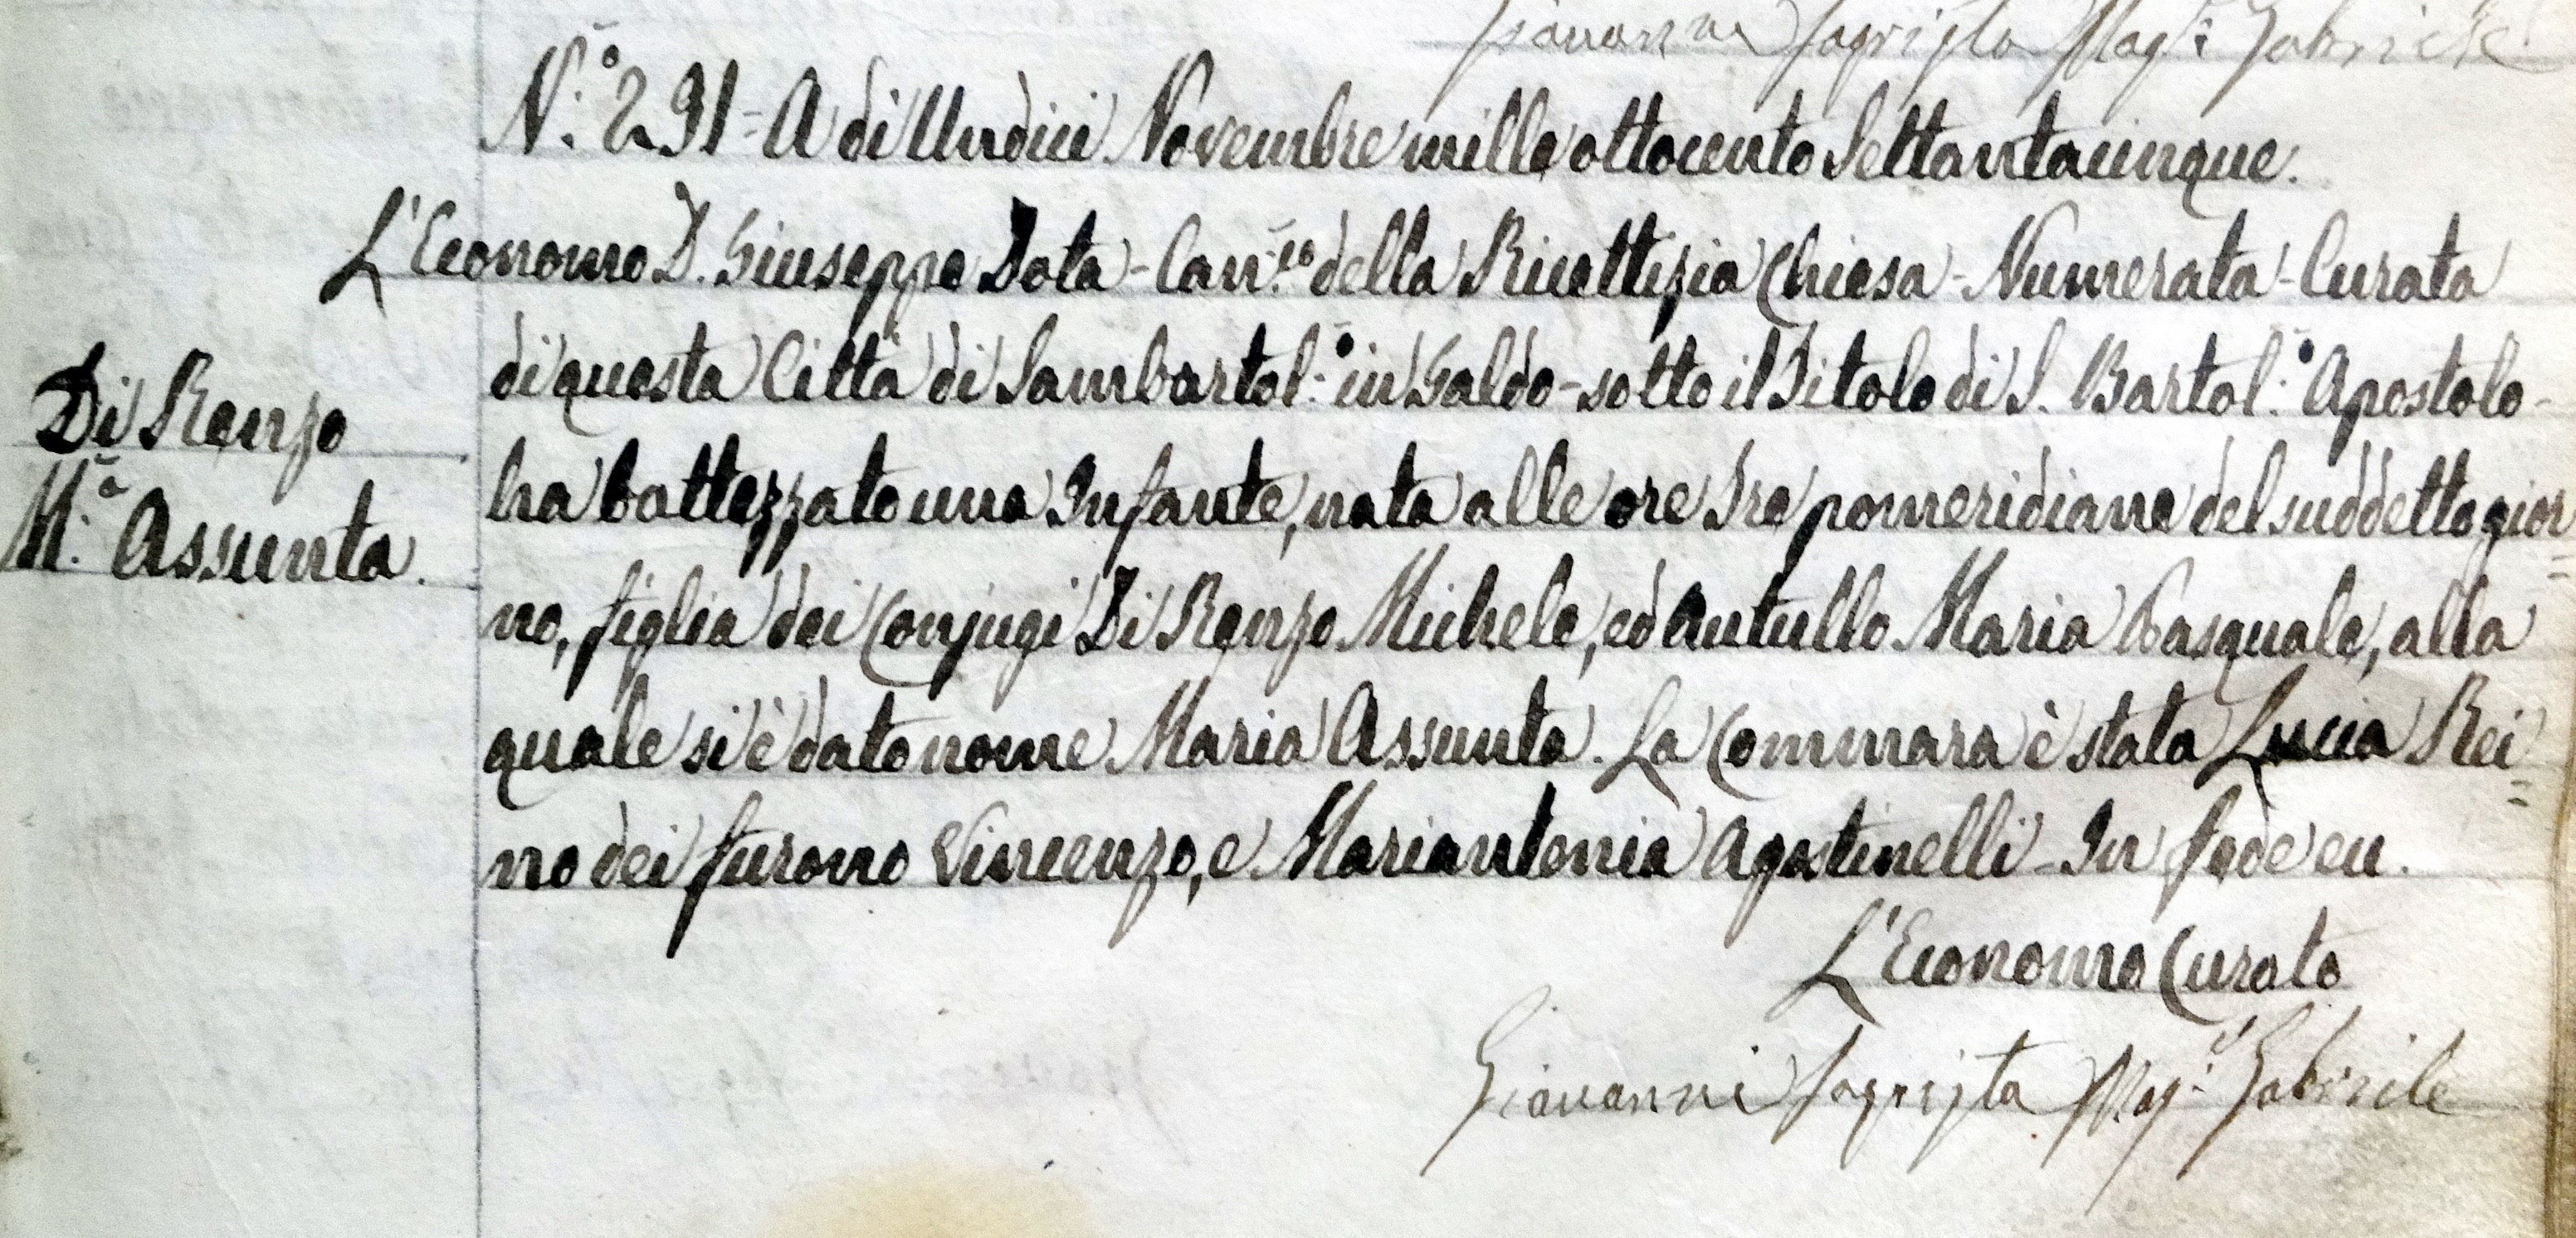 N.° 291 = A di Undici Novembre mille ottocento Settantacinque.
L'Economo D. Giuseppe Dota - Can.co della Ricettizia Chiesa - Numerata - Curata
di questa Città di Sambartol.° in Galdo - sotto il Titolo di S. Bartol.° Apostolo -
Di Renzo
M.a Assunta.
ha battezzato una Infante, nata alle ore Tre pomeridiane del suddetto gior=
no, figlia dei Conjugi Di Renzo Michele, ed Autullo Maria Pasquale, alla
quale si è dato nome Maria Assunta. La Commara è stata Lucia Rei=
no dei furono Vincenzo, e Mariantonia Agostinelli - In fede ec.
L'Economo Curato
Giovanni Mag.r Gabriele